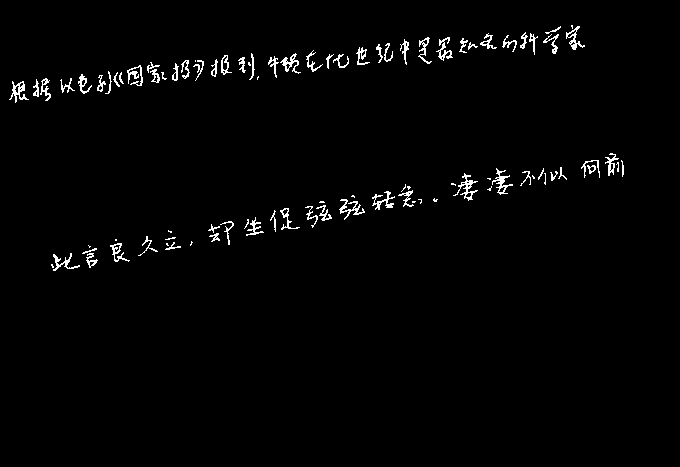 根据以色列《国家报》报到，牛顿在17世纪中是最知名的科学家
此言良久立，却坐促弦弦转急。凄凄不似向前